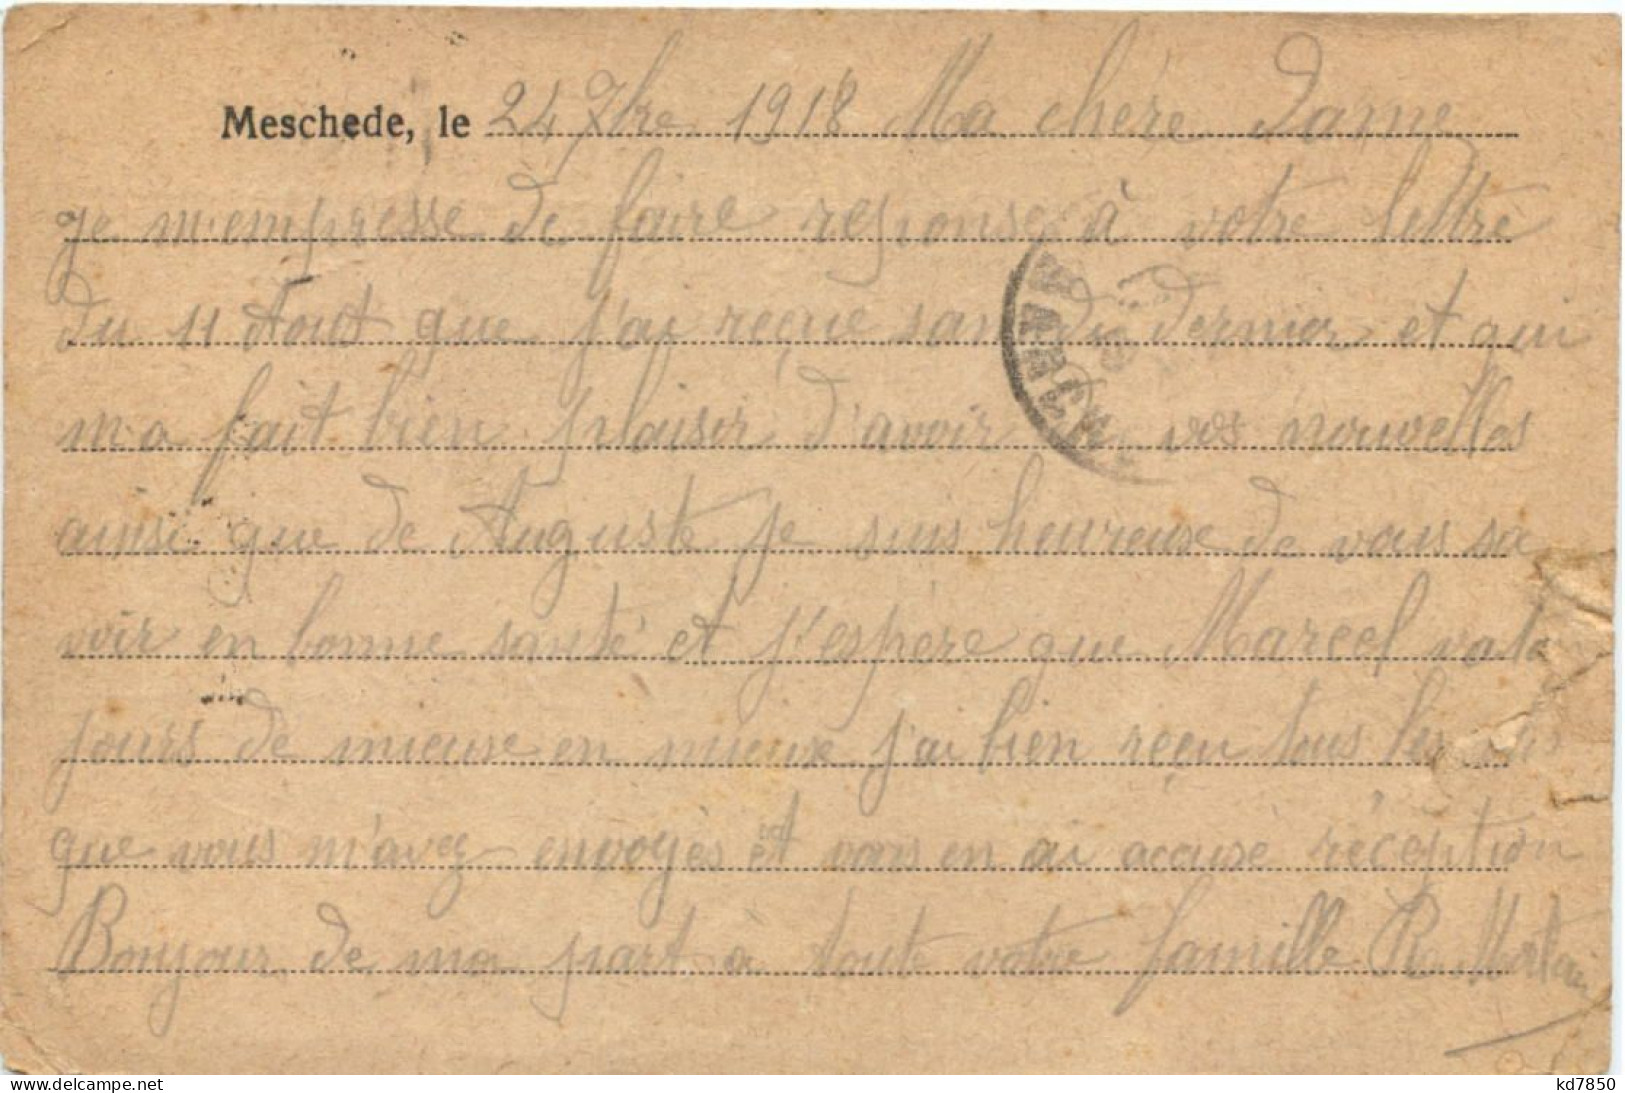 Meschede, le 24 7bre 1918 Ma chère Dame
je m'empresse de faire response à votre lettre
du 11 Aout que j'ai reçue samdi dernier et qui
ma fait bien plaisir d'avoir vos nouvelles
ainsi que de Auguste je suis heureuse de vous sa
voir en bonne santé et j'espère que Marcel va
jours de mieuxe en mieuxe j'ai bien reçu tous les
que vous m'avez envoyès et vous en ai acause réception
Bonjour de ma part à toute votre famille R.
delcampe.net
kd7850